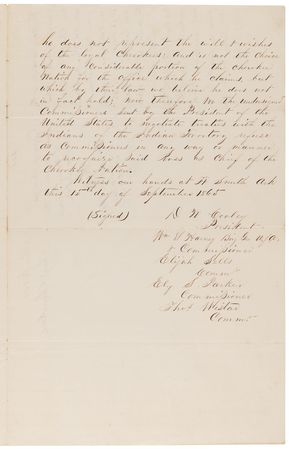 he does not represent the will & wishes
of the loyal Cherokees: And is not the choice
of any Considerable portion of the Cherokee
Nation for the Office which he claims, but
which by their law we believe he does not
in fact hold; Now therefore We the undersigned
Commissioners sent by the President of the
United States to negotiate treaties with the
Indians of the Indian Territory, refuse
as Commissioners in any way or manner
to recognize said Ross as Chief of the
Cherokee Nation.
Witness our hands at Ft Smith Ark
this 15th day of September 1865
(Signed) D N Cooley
President
Wm S Harney Brig Gn U.S.A.
& Commissioner
Elijah Sells
Commr
Ely S. Parker
Commissioner
Thos Wistar
Commr